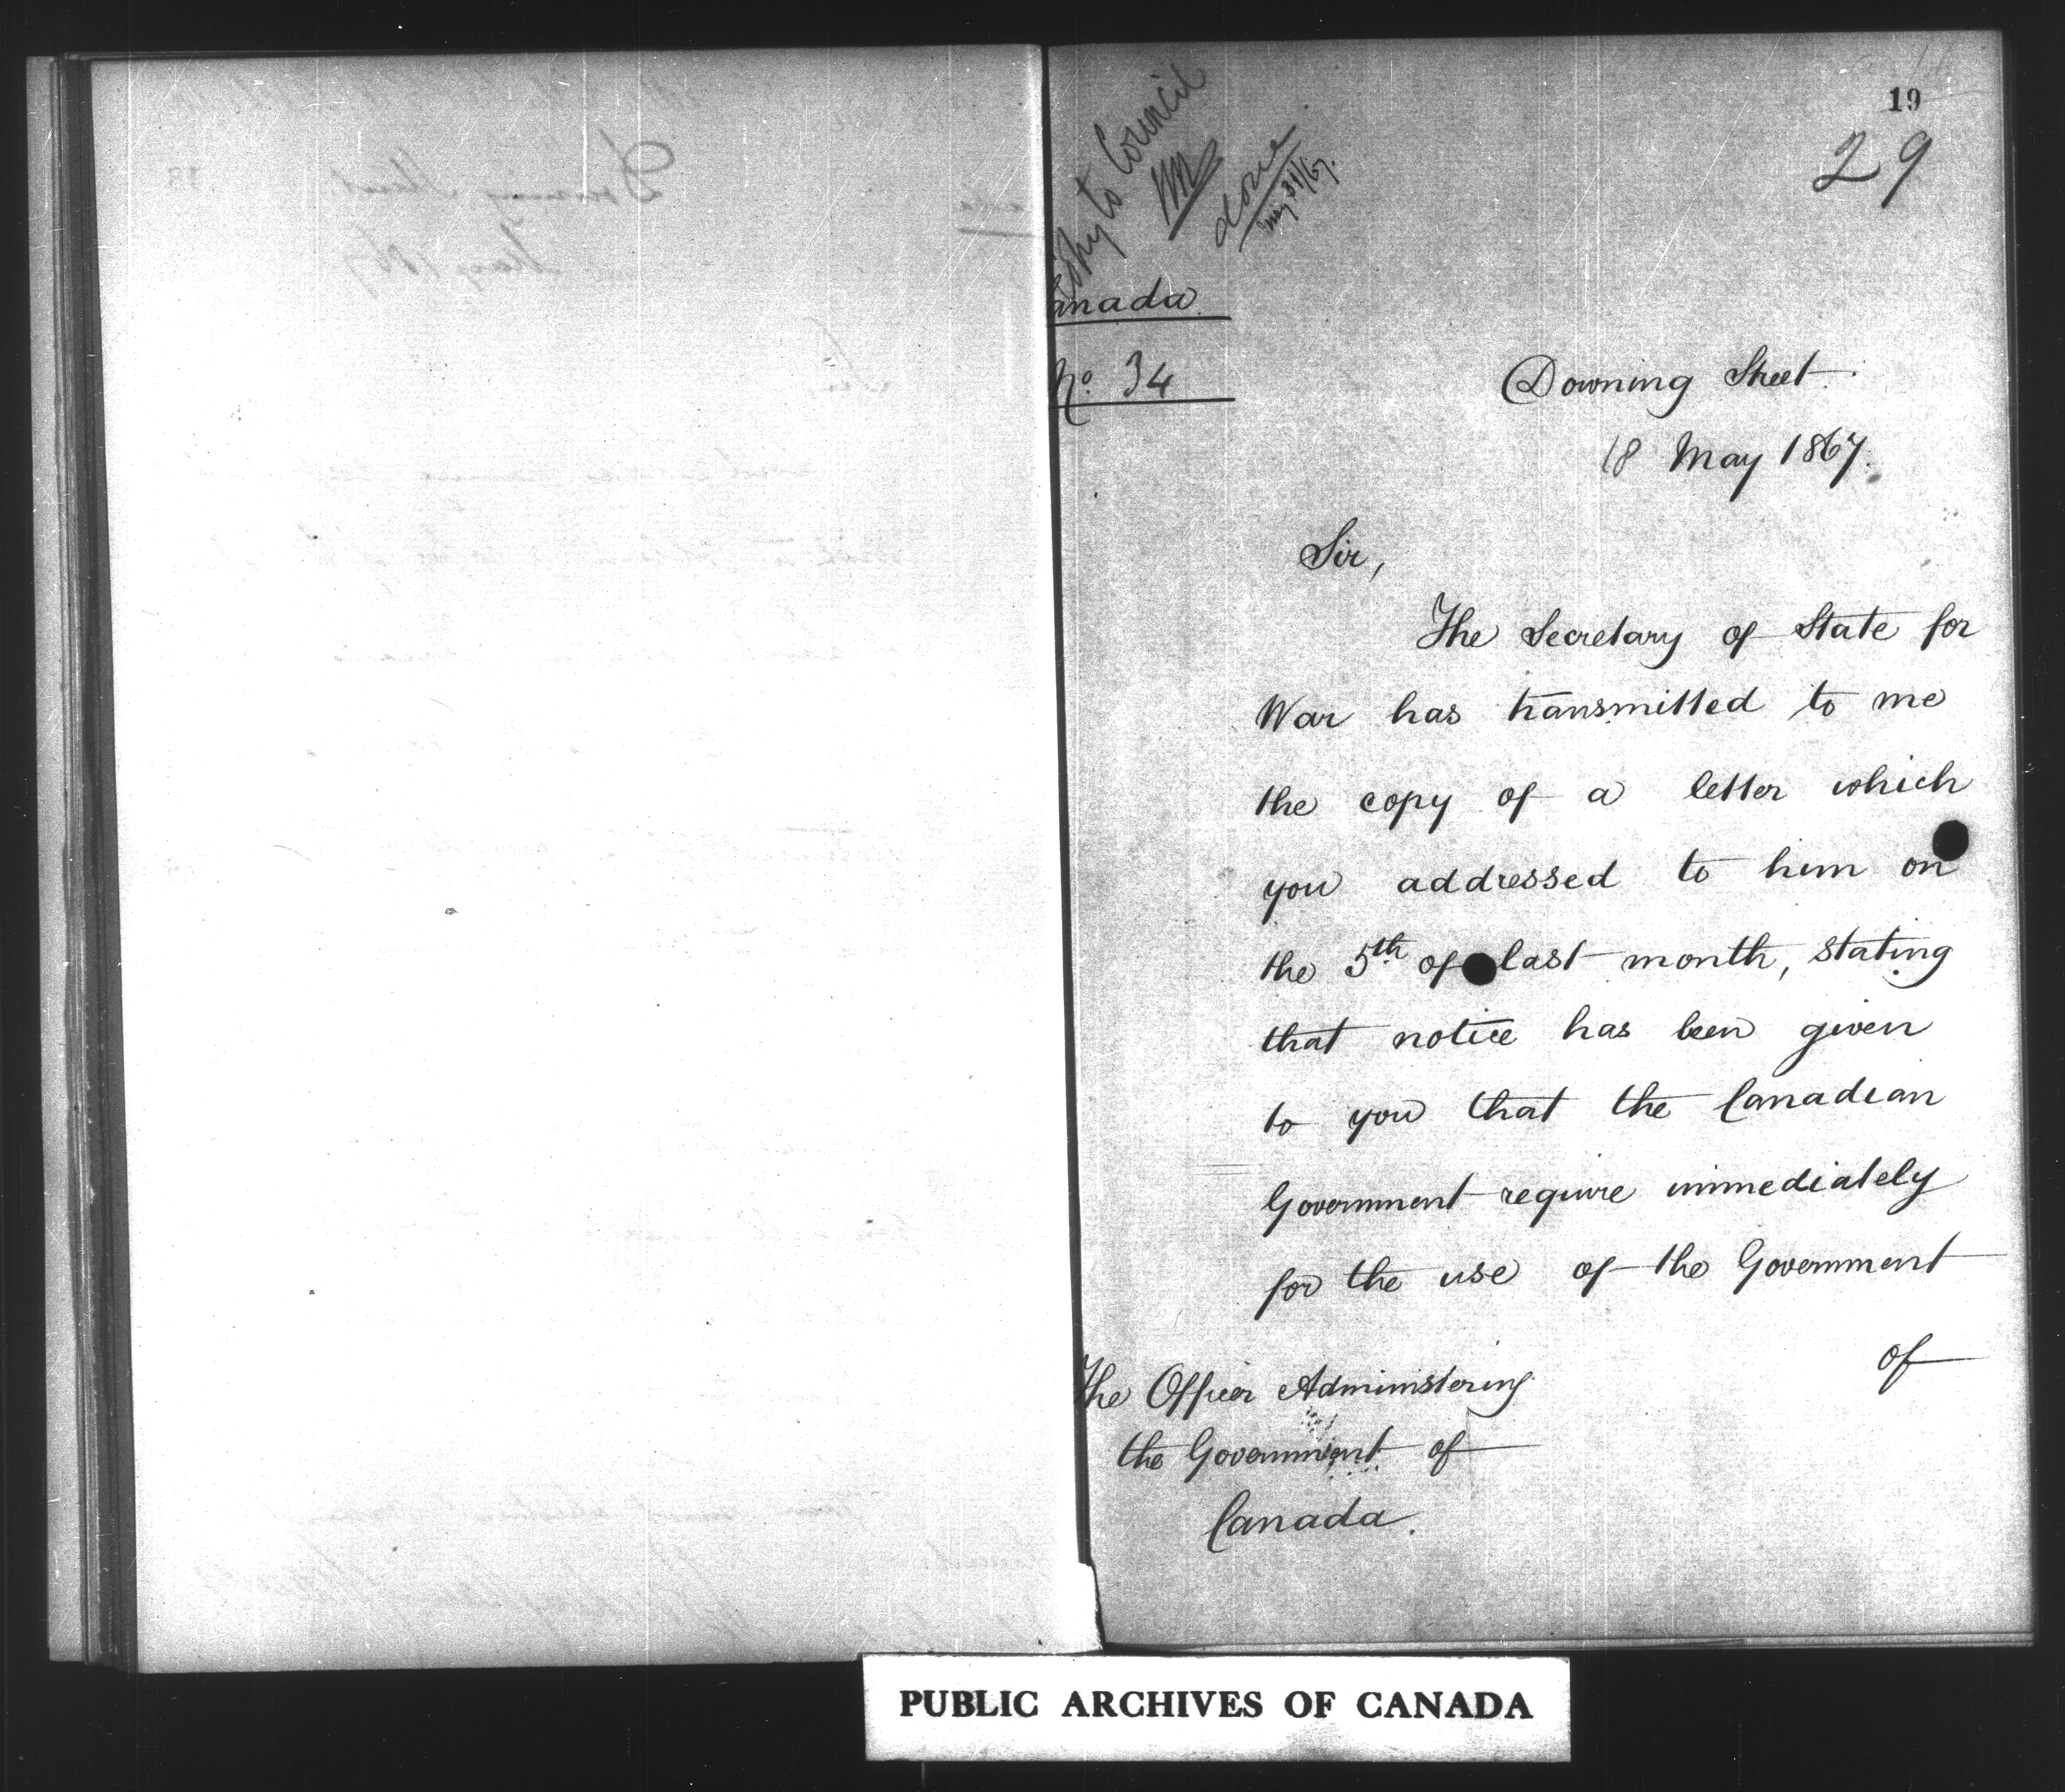 19
29
Copy to Council
done
May 31/67.
anada
No. 34
Downing Street
18 May 1867.
Sir,
The Secretary of State for
War has transmitted to me
the copy of a letter which
you addressed to him on
the 5th of last month, stating
that notice has been given
to you that the Canadian
Government require immediately
for the use of the Government
of
The Officer Administering
the Government of
Canada.
PUBLIC ARCHIVES OF CANADA